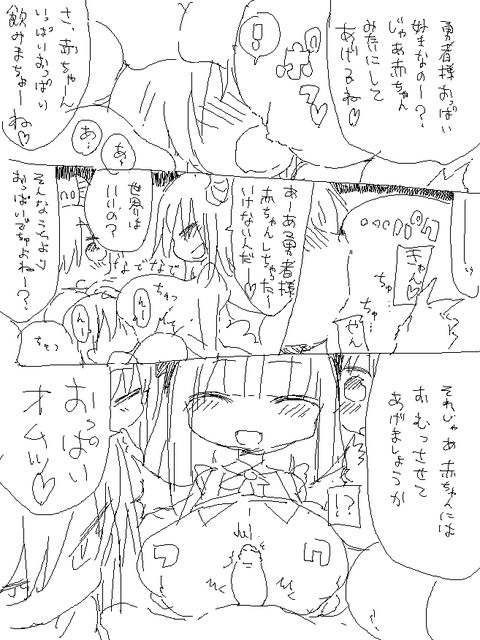 勇者様おっぱい
好きなのー？
じゃあ赤ちゃん
みたいにして
あげるね♡
！
さ、赤ちゃーん
いっぱいおっぱい
飲みまちゃーね♡
あ…
あ…
きゃん♡
ちゅ
ちゅ…
やん
あーあ勇者様
赤ちゃんしちゃったー
いけないんだー♡
世界は
いいの？
なでなで
ちゅっ
んー
んー
ちゅっ
おっぱいでちゅよねー？
それじゃあ赤ちゃんには
おむつさせて
あげましょうか
！？
おっぱい
オムツ♡